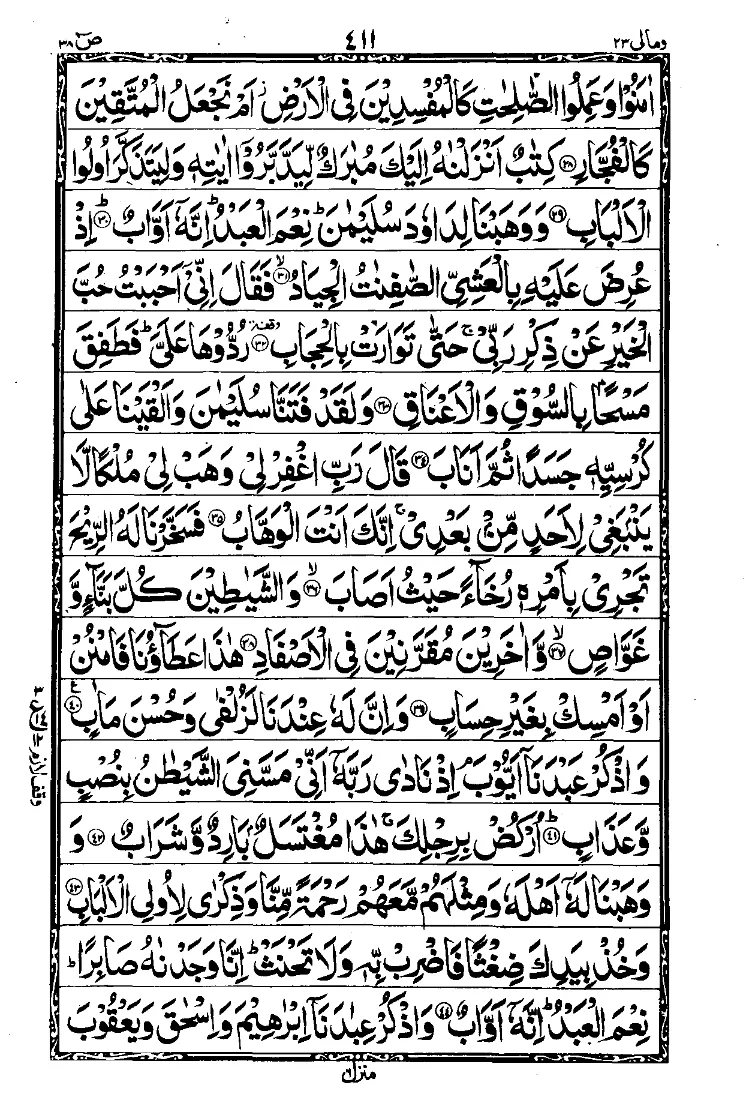 ومالی ٢٣ ٤١١ صٓ ٣٨
اٰمَنُوْا وَعَمِلُوا الصّٰلِحٰتِ كَالْمُفْسِدِيْنَ فِى الْاَرْضِ ز اَمْ نَجْعَلُ الْمُتَّقِيْنَ
كَالْفُجَّارِ ﴿٢٨﴾ كِتٰبٌ اَنْزَلْنٰهُ اِلَيْكَ مُبٰرَكٌ لِّيَدَّبَّرُوْٓا اٰيٰتِهٖ وَلِيَتَذَكَّرَ اُولُوا
الْاَلْبَابِ ﴿٢٩﴾ وَوَهَبْنَا لِدَاوٗدَ سُلَيْمٰنَ ؕ نِعْمَ الْعَبْدُ ؕ اِنَّهٗٓ اَوَّابٌ ؕ ﴿٣٠﴾ اِذْ
عُرِضَ عَلَيْهِ بِالْعَشِىِّ الصّٰفِنٰتُ الْجِيَادُ ۙ ﴿٣١﴾ فَقَالَ اِنِّىْٓ اَحْبَبْتُ حُبَّ
الْخَيْرِ عَنْ ذِكْرِ رَبِّىْ ۚ حَتّٰى تَوَارَتْ بِالْحِجَابِ وقفة ﴿٣٢﴾ رُدُّوْهَا عَلَىَّ ؕ فَطَفِقَ
مَسْحًۢا بِالسُّوْقِ وَالْاَعْنَاقِ ﴿٣٣﴾ وَلَقَدْ فَتَنَّا سُلَيْمٰنَ وَاَلْقَيْنَا عَلٰى
كُرْسِيِّهٖ جَسَدًا ثُمَّ اَنَابَ ﴿٣٤﴾ قَالَ رَبِّ اغْفِرْ لِىْ وَهَبْ لِىْ مُلْكًا لَّا
يَنْۢبَغِىْ لِاَحَدٍ مِّنْۢ بَعْدِىْ ۚ اِنَّكَ اَنْتَ الْوَهَّابُ ﴿٣٥﴾ فَسَخَّرْنَا لَهُ الرِّيْحَ
تَجْرِىْ بِاَمْرِهٖ رُخَآءً حَيْثُ اَصَابَ ۙ ﴿٣٦﴾ وَالشَّيٰطِيْنَ كُلَّ بَنَّآءٍ وَّ
غَوَّاصٍ ۙ ﴿٣٧﴾ وَّاٰخَرِيْنَ مُقَرَّنِيْنَ فِى الْاَصْفَادِ ﴿٣٨﴾ هٰذَا عَطَآؤُنَا فَامْنُنْ
اَوْ اَمْسِكْ بِغَيْرِ حِسَابٍ ﴿٣٩﴾ وَاِنَّ لَهٗ عِنْدَنَا لَزُلْفٰى وَحُسْنَ مَاٰبٍ ﴿٤٠﴾ ع
وَاذْكُرْ عَبْدَنَآ اَيُّوْبَ ۘ اِذْ نَادٰى رَبَّهٗٓ اَنِّىْ مَسَّنِىَ الشَّيْطٰنُ بِنُصْبٍ
وَّعَذَابٍ ؕ ﴿٤١﴾ اُرْكُضْ بِرِجْلِكَ ۚ هٰذَا مُغْتَسَلٌۢ بَارِدٌ وَّشَرَابٌ ﴿٤٢﴾ وَ
وَهَبْنَا لَهٗٓ اَهْلَهٗ وَمِثْلَهُمْ مَّعَهُمْ رَحْمَةً مِّنَّا وَذِكْرٰى لِاُولِى الْاَلْبَابِ ﴿٤٣﴾
وَخُذْ بِيَدِكَ ضِغْثًا فَاضْرِبْ بِّهٖ وَلَا تَحْنَثْ ؕ اِنَّا وَجَدْنٰهُ صَابِرًا ؕ
نِعْمَ الْعَبْدُ ؕ اِنَّهٗٓ اَوَّابٌ ﴿٤٤﴾ وَاذْكُرْ عِبٰدَنَآ اِبْرٰهِيْمَ وَاِسْحٰقَ وَيَعْقُوْبَ
منزل ٦
وقف لازم